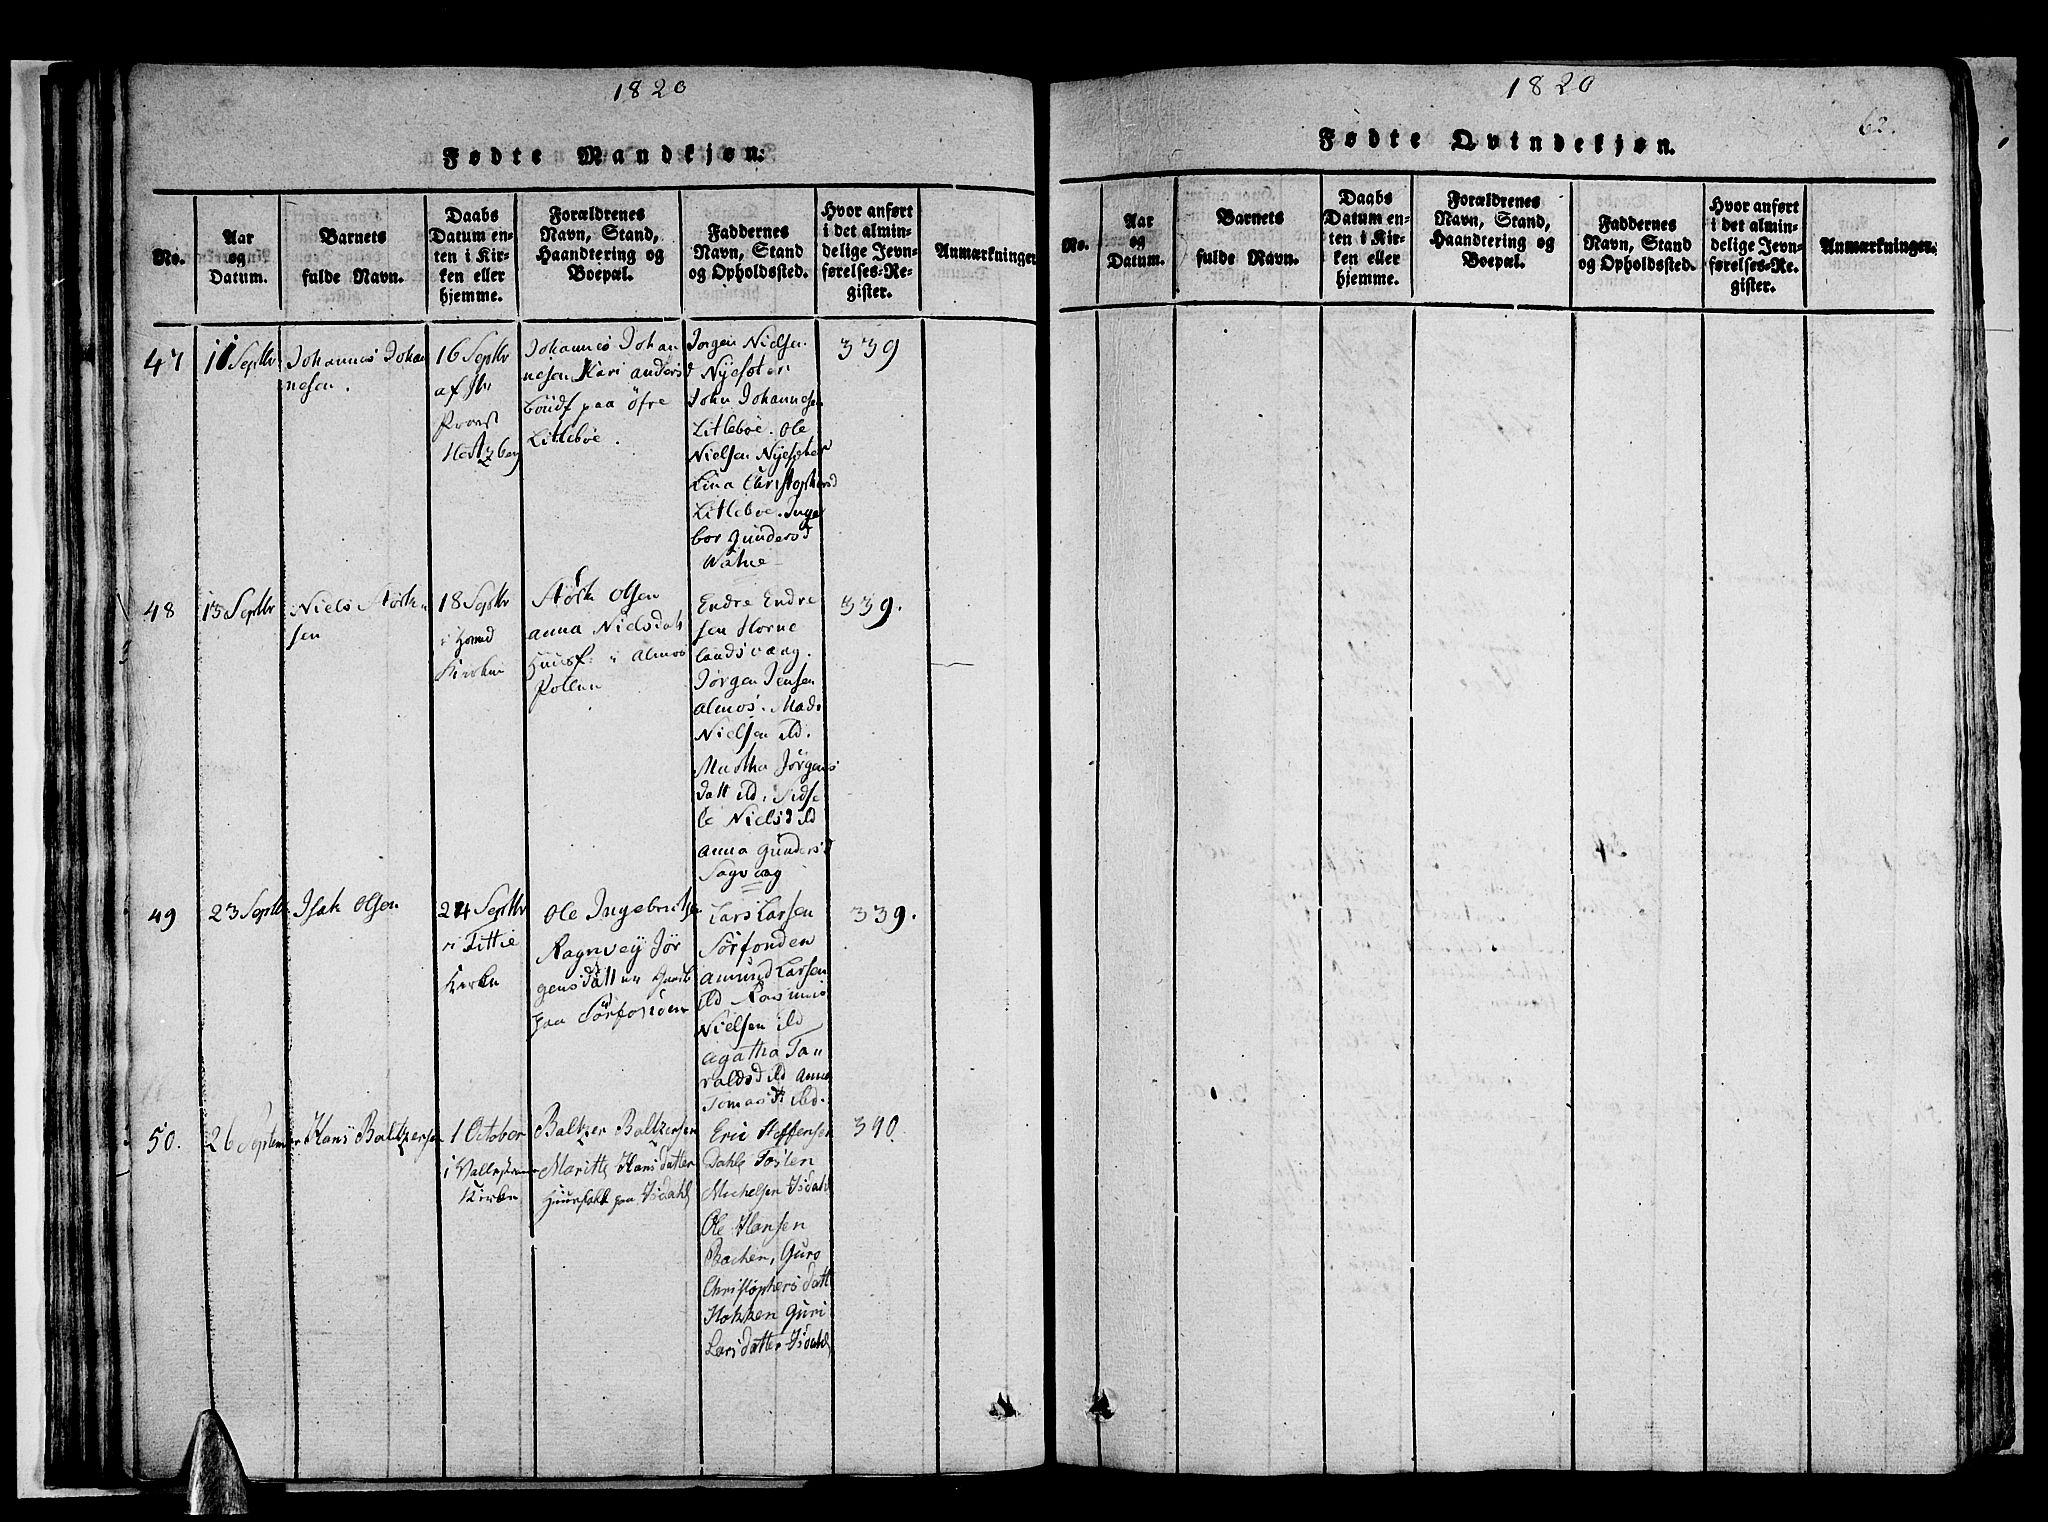 1820
Fødte Mandkjøn.
No.
Aar
og
Datum.
Barnets
fulde Navn.
Daabs
Datum en-
ten i Kir-
ken eller
hjemme.
Forældrenes
Navn, Stand,
Haandtering og
Boepæl.
Faddernes
Navn, Stand
og Opholdssted.
Hvor anført
i det almin-
delige Jevn-
førelses-Re-
gister.
Anmærkninger
47
11 Septbr
Johannes Johan
nesen.
16 Septbr
af Hr
Provst
Hertzberg
Johannes Johan
nesen Kari andersd
boudf paa öfre
Litleböe.
Jorgen Nielsen
Nyesæter
John Johannesen
Litleböe. Ole
Nielsen Nyesæter
Lina Christophersd
Litleböe. Inge
bor Gundersd
Watne
339
48
15 Septbr
Niels Störk
sen
18 Septbr
i
Kirken
Störk Olsen
anna Nielsdatt
Huusf: i Almos
Pollen
Endre Endre
sen Horne
landsvaag.
Jörgen Jensen
almos. Mads
Nielsen ibd.
Martha Jörgens
datt ibd. Sidse
le Nielsd ibd
anna Gundersd
Sagvaag
339.
49
23 Septbr
Isak Olsen
24 Septbr
i Fittie
Kirke
Ole Ingebrigtsen
Ragnvey Jör
gensdatt
paa Sörfonden
Lars Larsen
Sörfonden
amund Larsen
ibd Rasmus
Nielsen ibd
agatha Ta
raldsd ibd Anna
Tomasdt ibd.
339.
50.
26 September
Hans Baltzersen
1 October
i
Kirke
Baltzer Baltzersen
Maritte Hansdatter
Huusfolk paa Isdahl
Eric Steffensen
Dahle Josten
Michelsen Isdahl
Ole Hansen
Backen, Guro
Christophersdatt
Hokken Guri
Larsdatter Isdahl
340
1820
62.
Fødte Qvindekjøn.
No.
Aar
og
Datum.
Barnets
fulde Navn.
Daabs
Datum en-
ten i Kir-
ken eller
hjemme.
Forældrenes
Navn, Stand,
Haandtering og
Boepæl.
Faddernes
Navn, Stand
og Opholdssted.
Hvor anført
i det almin-
delige Jevn-
førelses-Re-
gister.
Anmærkninger.